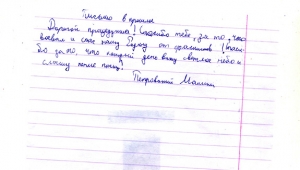 Письмо в прошлое
Дорогой прадедушка! Спасибо тебе, за то, что
воевал и спас нашу Родину от фашистов! Спаси-
бо за то, что каждый день вижу светлое небо и
слышу пение птиц!
Петровский Максим